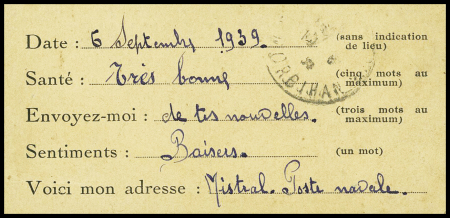 Date : 6 Septembre 1939. (sans indication
de lieu)
Santé : Très bonne (cinq mots au
maximum)
Envoyez-moi : de tes nouvelles. (trois mots au
maximum)
Sentiments : Baisers. (un mot)
Voici mon adresse : Mistral. Poste navale.
MORBIHAN